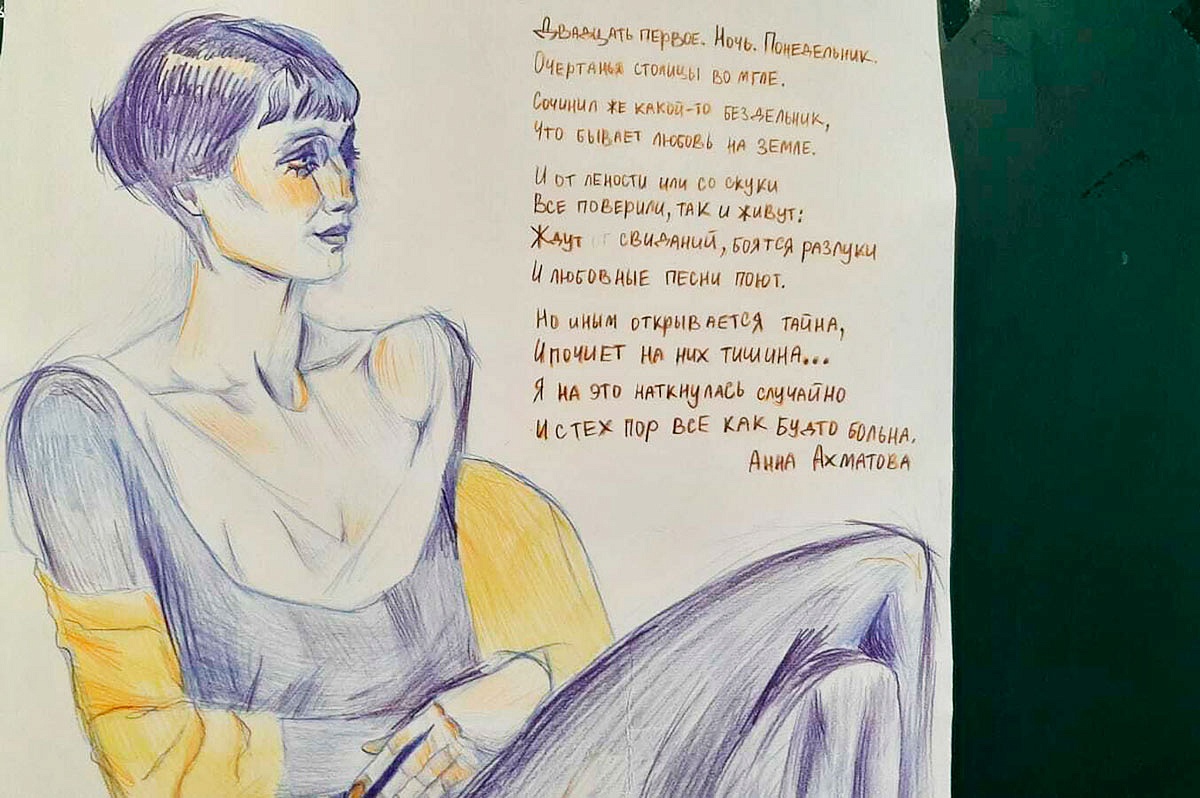 Двадцать первое. Ночь. Понедельник.
Очертанья столицы во мгле.
Сочинил же какой-то бездельник,
Что бывает любовь на земле.
И от лености или со скуки
Все поверили, так и живут:
Ждут свиданий, боятся разлуки
И любовные песни поют.
Но иным открывается тайна,
И почиет на них тишина...
Я на это наткнулась случайно
И с тех пор все как будто больна.
Анна Ахматова